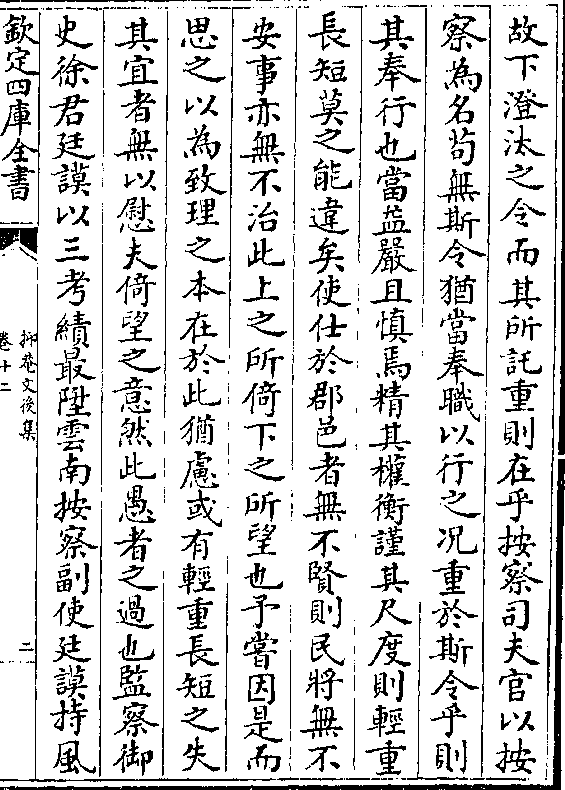 故下澄汰之令而其所託重則在乎按察司夫官以按
察為名苟無斯令猶當奉職以行之况重於斯令乎則
其奉行也當益嚴且慎焉精其權衡謹其尺度則輕重
長短莫之能違矣使仕於郡邑者無不賢則民將無不
安事亦無不治此上之所倚下之所望也予嘗因是而
思之以為致理之本在於此猶慮或有輕重長短之失
其宜者無以慰夫倚望之意然此愚者之過也監察御
史徐君廷謨以三考績最陞雲南按察副使廷謨持風
欽定四庫全書
抑菴文後集
卷十二
二